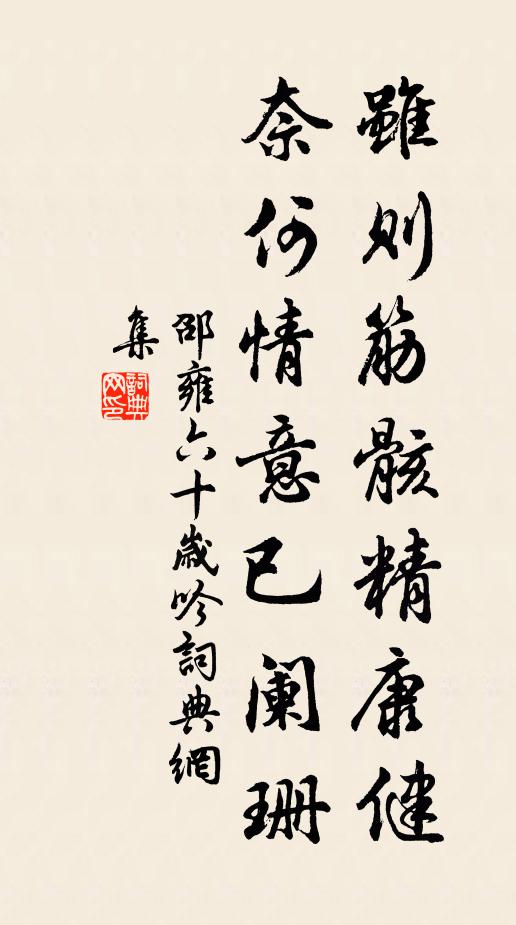 雖則筋骸精康健
奈何情意已闌珊
邵雍六十歲吟詞典網
集
詞典
网印